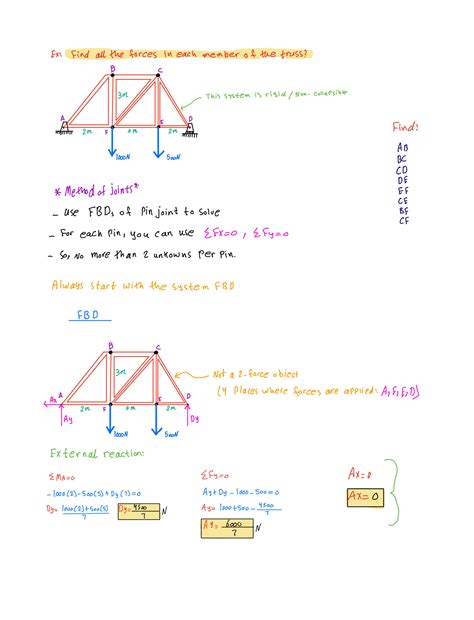 Ex: Find all the forces in each member of the truss?
B C
3m
This system is rigid / Non-collapsible
A F E D
2m 2m 2m
1000N 500N
Find:
AB
BC
CD
DE
EF
CE
BF
CF
* Method of joints *
- Use FBDs of pin joint to solve
- For each pin, you can use ΣFx=0 , ΣFy=0
- So, no more than 2 unkowns per pin.
Always start with the system FBD
FBD
B C
3m
Not a 2-force object
(4 places where forces are applied: A,F,E,D)
Ax A F E D
2m 2m 2m
Ay Dy
1000N 500N
External reaction:
ΣMA=0
-1000(2)-500(5)+Dy(7)=0
Dy= 1000(2)+500(5) / 7
Dy= 4500 / 7 N
ΣFy=0
Ay+Dy-1000-500=0
Ay= 1000+500- 4500 / 7
Ay= 6000 / 7 N
Ax=0
Ax=0